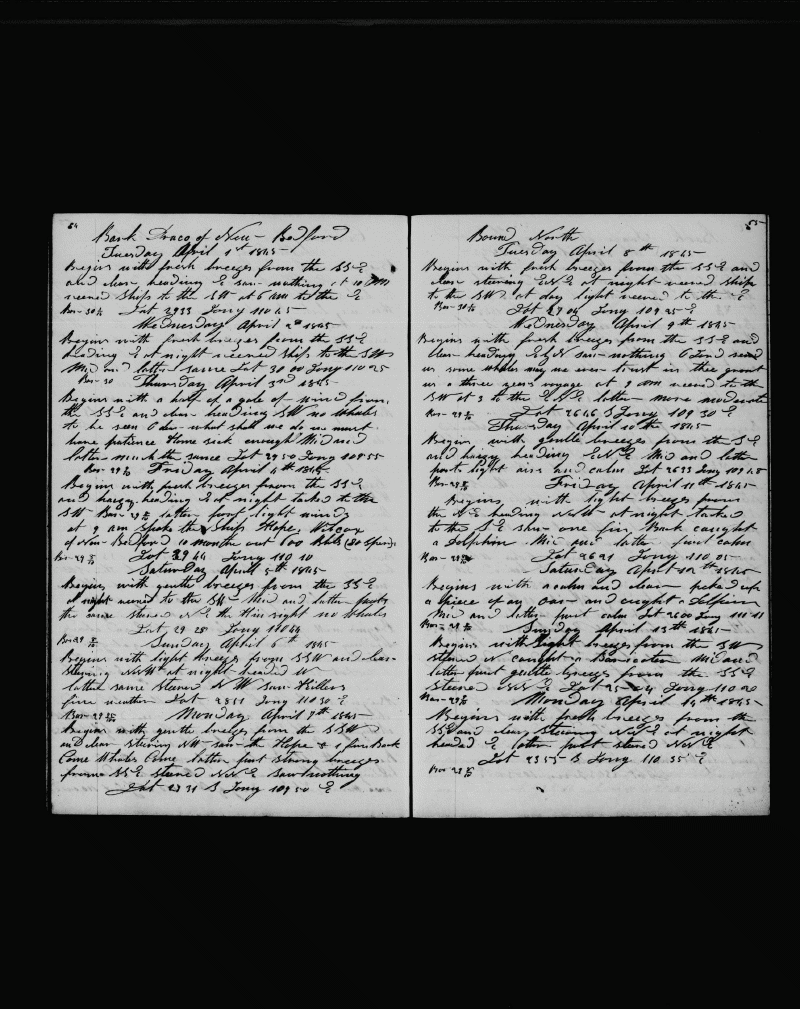 54
Bark Draco of New-Bedford
Tuesday April 1st 1845
Begins with fresh breezes from the SSE
and clear heading E saw nothing at 10 PM
veered ship to the SW at 6 am to the E
Bar 30 Lat 2933 Long 110 45
Wednesday April 2nd 1845
Begins with fresh breezes from the SSE
heading E at night veered ship to the SW
Mid and latter same Lat 30 00 Long 110 25
Bar 30 Thursday April 3rd 1845
Begins with a half of a gale of wind from
the SSE and clear heading SW no whales
to be seen O dear what shall we do we must
have patience Home sick enough Mid and
latter much the same Lat 29 50 Long 109 55
Bar 29 Friday April 4th 1845
Begins with fresh breezes from the SSE
and hazy heading E at night tacked to the
SW Bar 29 latter part light winds
at 9 am spoke the Ship Hope, Wilcox
of New-Bedford 10 months out 100 Bbls (80 Sperm)
Bar 29 Lat 29 44 Long 110 10
Saturday April 5th 1845
Begins with gentle breezes from the SSE
at night veered to the SW Mid and latter parts
the same steered N E the Him right no whales
Lat 29 28 Long 110 44
Bar 29
Sunday April 6th 1845
Begins with light breezes from SSW and
steering NNW at night headed W
latter same steered N W saw Killers
fine weather Lat 2811 Long 110 30 E
Bar 29 Monday April 7th 1845
Begins with gentle breezes from the SSW
and clear steering NW saw the Hope & 1 fin Back
Come Whales Come latter part strong breezes
from SSE steered NNE saw nothing
Lat 27 31 S Long 109 50 E
55
Bound North
Tuesday April 8th 1845
Begins with fresh breezes from the SSE and
clear steering ENE at night veered ship
to the SW at day light veered to the E
Bar 30 Lat 27 04 Long 109 25 E
Wednesday April 9th 1845
Begins with fresh breezes from the SSE and
clear heading E saw nothing O Lord send
us some whales may we ever trust in thee grant
us a three years voyage at 9 am veered to the
SW at 3 to the E latter more moderate
Bar 29 Lat 26 46 S Long 109 30 E
Thursday April 10th 1845
Begins with gentle breezes from the SE
and hazy heading ENE Mid and latter
part light airs and calm Lat 2633 Long 109 48
Bar 29 Friday April 11th 1845
Begins with light breezes from
the NE heading NNW at night tacked
to the SE saw one fin Back caught
a Dolphin Mid and latter part calm
Bar 29 Lat 2621 Long 110 05
Saturday April 12th 1845
Begins with a calm and clear picked up
a piece of an oar and caught a Dolphin
Mid and latter part calm Lat 2600 Long 110 11
Bar 29 Sunday April 13th 1845
Begins with light breezes from the SW
steered N caught a Barracouta Mid and
latter part gentle breezes from the SSE
steered NNE Lat 25 24 Long 110 20
Bar 29 Monday April 14th 1845
Begins with fresh breezes from the
SSE and clear steering NNE at night
headed E latter part steered NNE
Lat 23 55 S Long 110 35 E
Bar 29